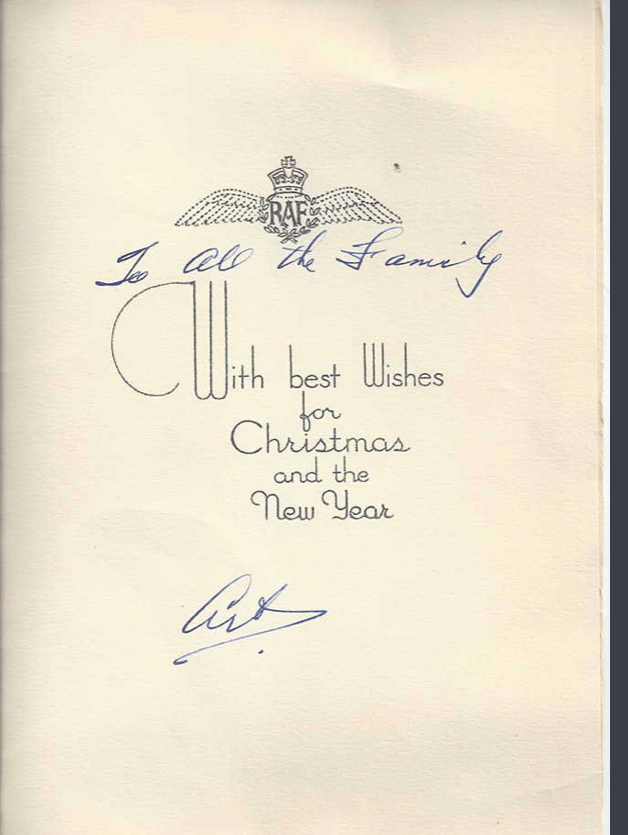 RAF
To All the Family
With best Wishes
for
Christmas
and the
New Year
Art